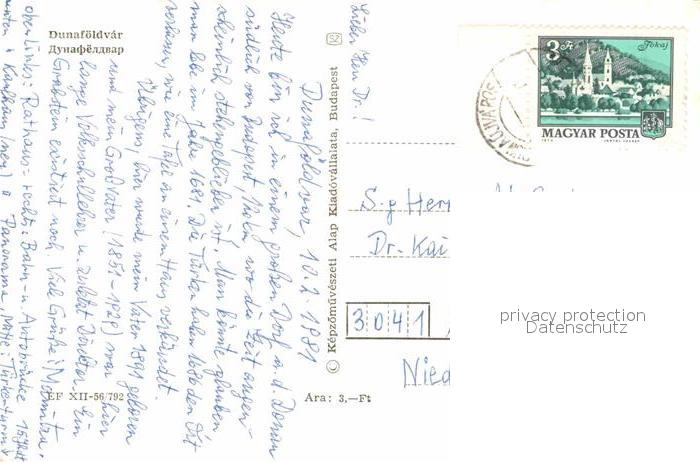 Dunaföldvár
Дунафёлдвар
Lieber Herr Dr.!
Dunaföldvar, 10.2.1981
Heute bin ich in einem großen Dorf a.d. Donau
südlich von Budapest, wo die Zeit augen-
scheinlich stehengeblieben ist. Man könnte glauben
man lebe im Jahre 1681. Die Türken haben 1686 den Ort
verlassen, wie eine Tafel an einem Haus verkündet.
Übrigens, hier wurde mein Vater 1891 geboren
und mein Großvater (1851-1928) war hier
lange Volksschullehrer u. zuletzt Direktor. Ein
Grabstein existiert noch. Viele Grüße!
oben links: Rathaus, rechts: Bahn- u. Autobrücke
unten: Panorama, Mitte: Türkenturm
EF XII-56/792
Ara: 3,—Ft
© Képzőművészeti Alap Kiadóvállalata, Budapest SZ
3 Ft
Tokaj
MAGYAR POSTA
S.g. Herr
Dr. Kai
3041
Nied
privacy protection
Datenschutz